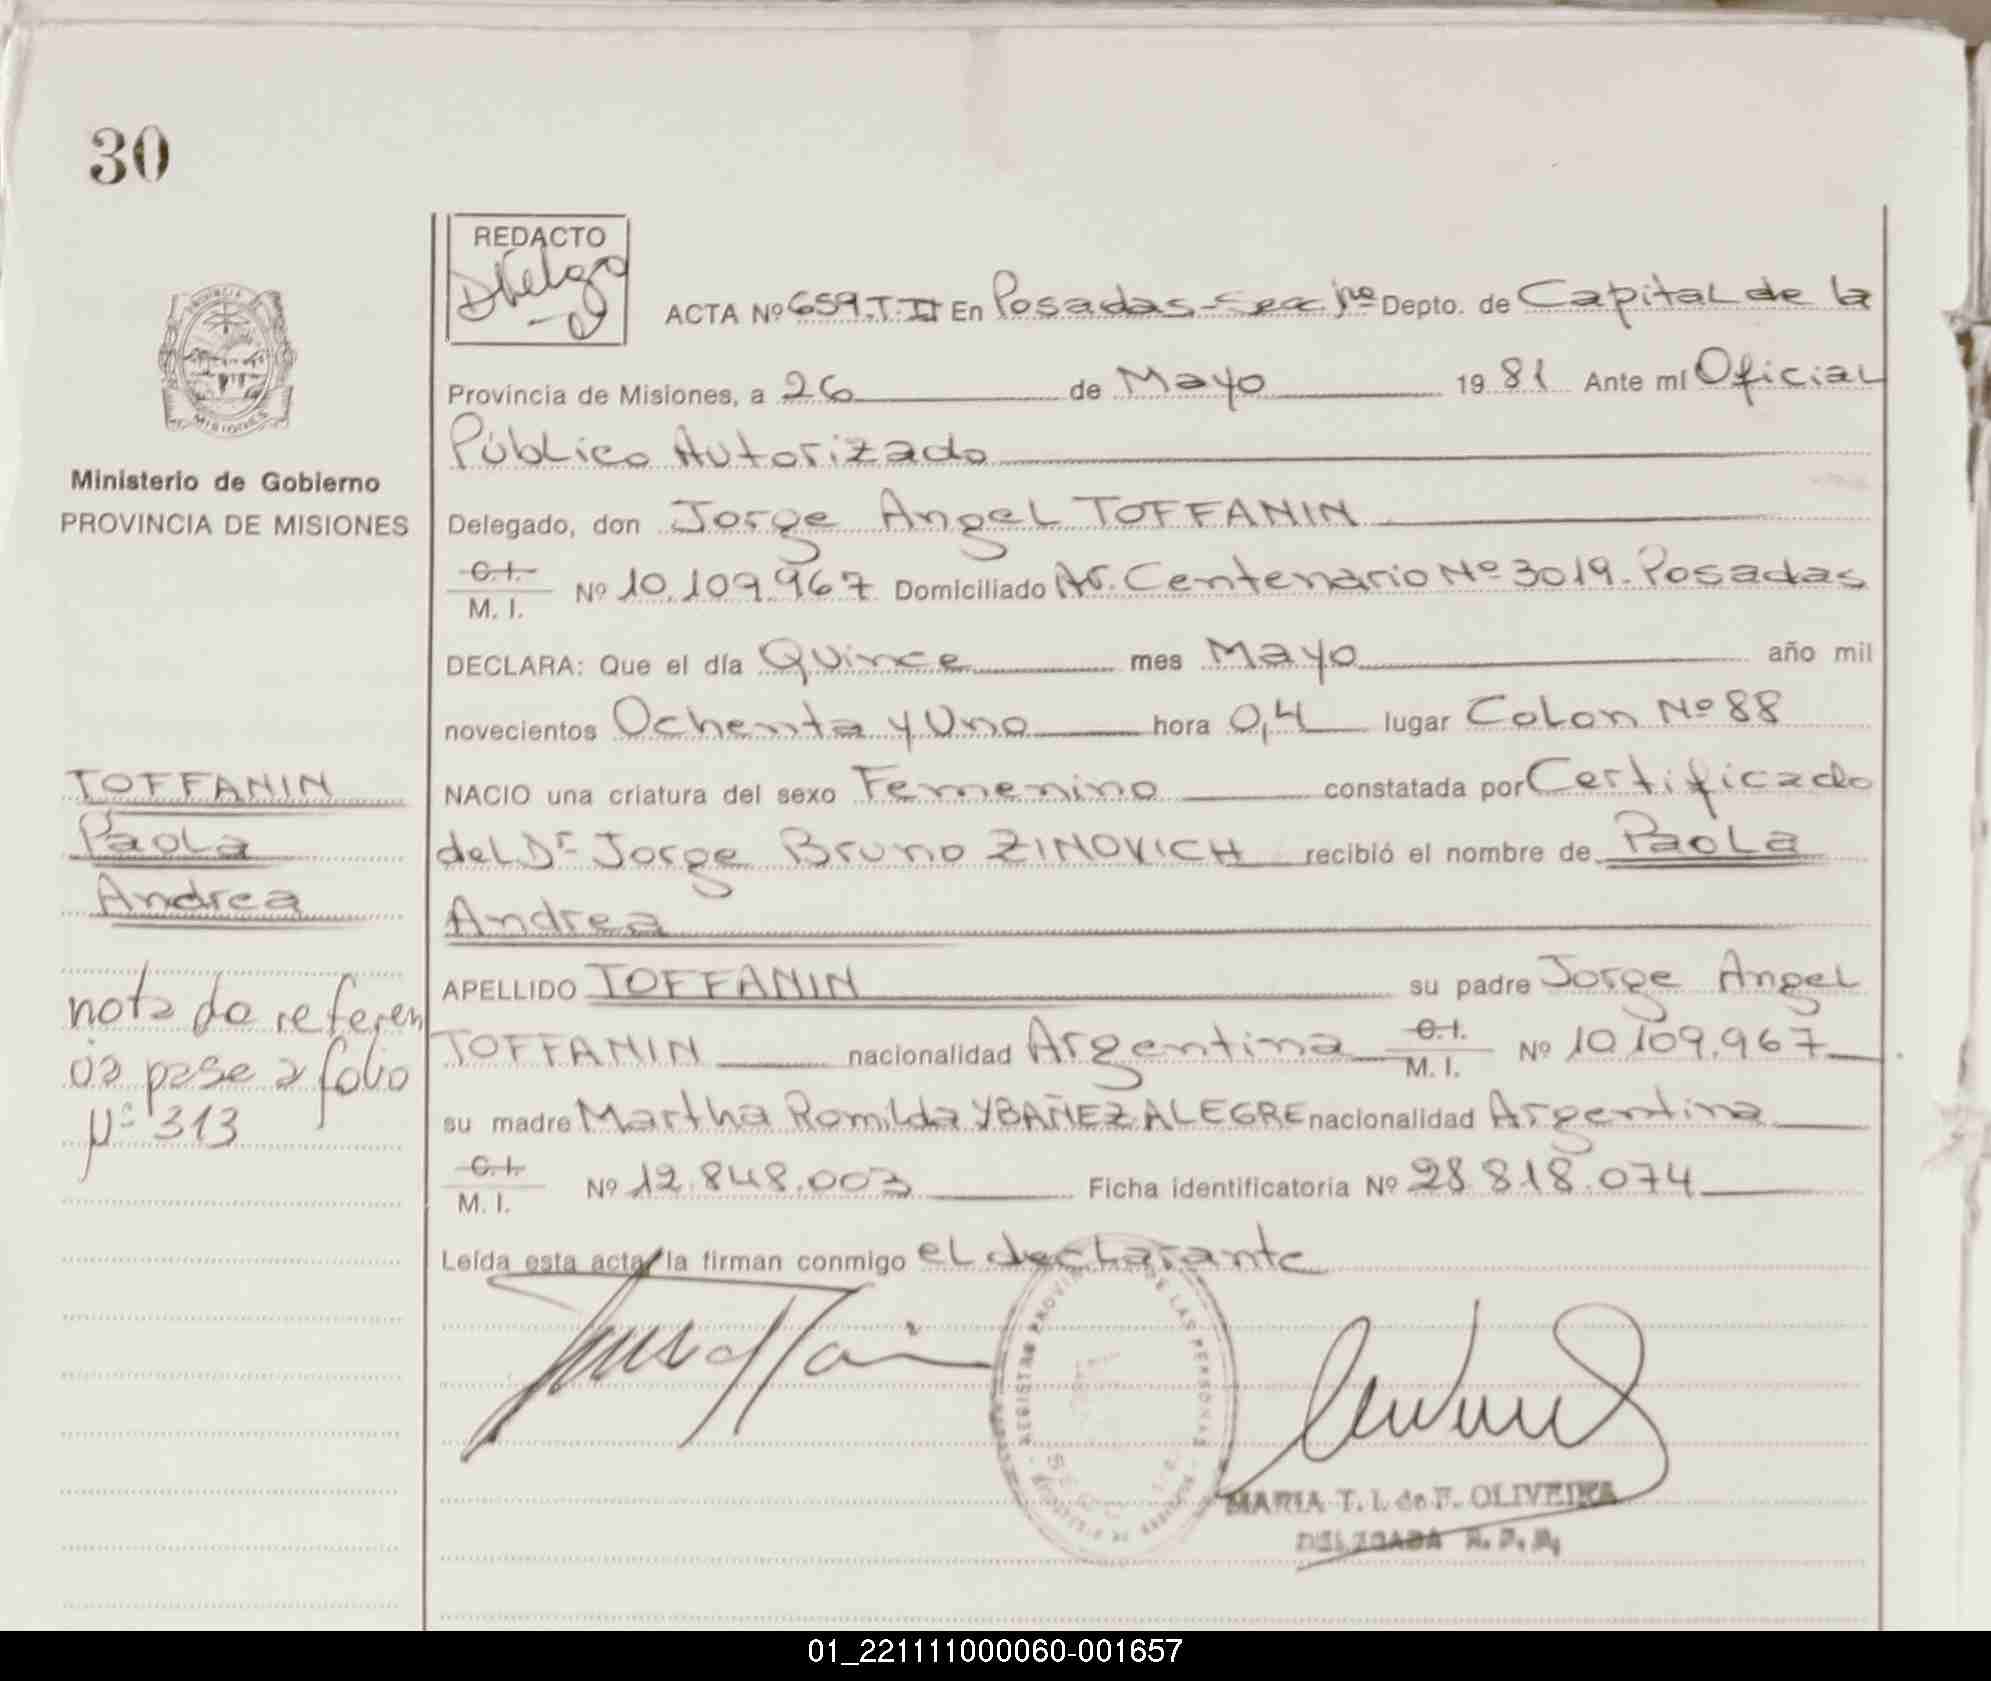 30
REDACTO
PROVINCIA
MISIONES
Ministerio de Gobierno
PROVINCIA DE MISIONES
ACTA Nº 659.T.II En Posadas-Sec 1ra Depto. de Capital de la
Provincia de Misiones, a 26 de Mayo 1981 Ante mí Oficial
Público Autorizado
Delegado, don Jorge Angel TOFFANIN
C.I. M.I. Nº 10.109.967 Domiciliado Av. Centenario Nº 3019-Posadas
DECLARA: Que el día Quince mes Mayo año mil
novecientos Ochenta y Uno hora 0,4 lugar Colon Nº 88
NACIO una criatura del sexo Femenino constatada por Certificado
del Dr Jorge Bruno ZINOVICH recibió el nombre de Paola
Andrea
APELLIDO TOFFANIN su padre Jorge Angel
TOFFANIN nacionalidad Argentina C.I. M.I. Nº 10.109.967
su madre Martha Romilda YBAÑEZ ALEGRE nacionalidad Argentina
C.I. M.I. Nº 12.848.003 Ficha identificatoria Nº 28.818.074
Leída esta acta, la firman conmigo el declarante
TOFFANIN
Paola
Andrea
nota de referen
cia pase a folio
Nº 313
REGISTRO PROVINCIAL DE LAS PERSONAS
MARIA T. I. de F. OLIVEIRA
DELEGADA R. P. P.
01_221111000060-001657